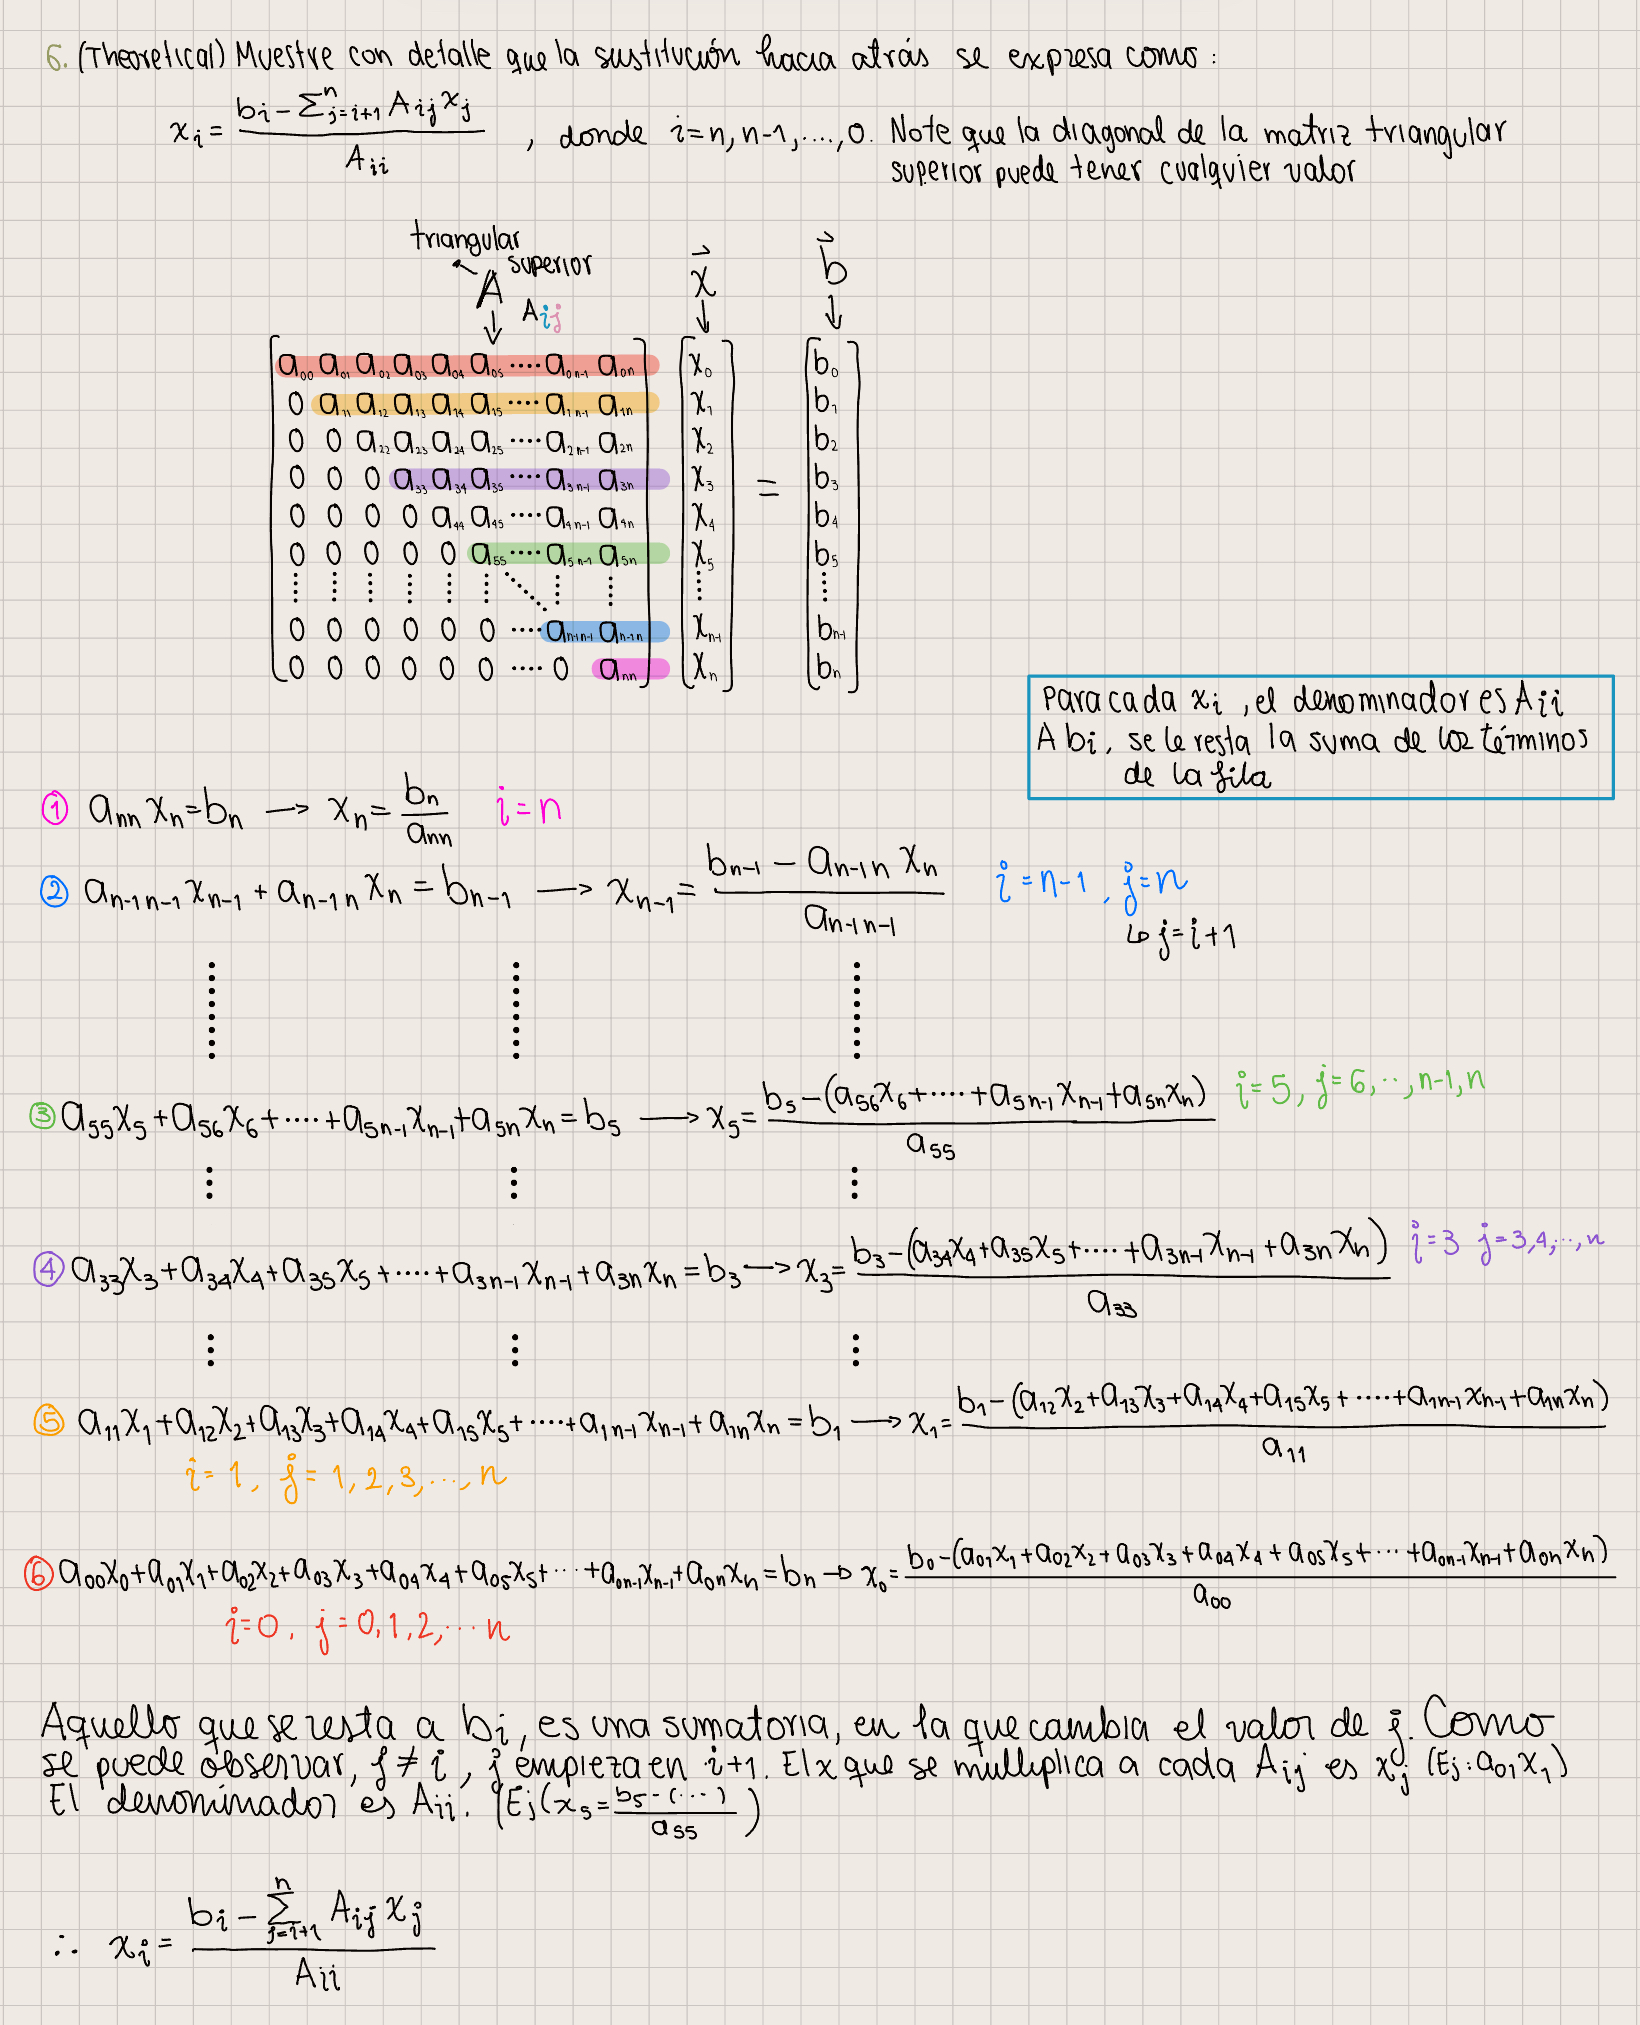 6. (Theoretical) Muestre con detalle que la sustitución hacia atrás se expresa como:
x_i = (b_i - Σ_{j=i+1}^{n} A_{ij} x_j) / A_{ii} , donde i=n, n-1, ...., 0. Note que la diagonal de la matriz triangular
superior puede tener cualquier valor
triangular
superior
A
A_{ij}
x⃗
b⃗
a_{00} a_{01} a_{02} a_{03} a_{04} a_{05} .... a_{0n-1} a_{0n} x_0 b_0
0 a_{11} a_{12} a_{13} a_{14} a_{15} .... a_{1n-1} a_{1n} x_1 b_1
0 0 a_{22} a_{23} a_{24} a_{25} .... a_{2n-1} a_{2n} x_2 b_2
0 0 0 a_{33} a_{34} a_{35} .... a_{3n-1} a_{3n} x_3 = b_3
0 0 0 0 a_{44} a_{45} .... a_{4n-1} a_{4n} x_4 b_4
0 0 0 0 0 a_{55} .... a_{5n-1} a_{5n} x_5 b_5
0 0 0 0 0 0 .... a_{n-1n-1} a_{n-1n} x_{n-1} b_{n-1}
0 0 0 0 0 0 .... 0 a_{nn} x_n b_n
Para cada x_i, el denominador es A_{ii}
A b_i, se le resta la suma de los términos
de la fila
① a_{nn} x_n = b_n → x_n = b_n / a_{nn} i=n
② a_{n-1n-1} x_{n-1} + a_{n-1n} x_n = b_{n-1} → x_{n-1} = (b_{n-1} - a_{n-1n} x_n) / a_{n-1n-1} i=n-1, j=n
↳ j=i+1
③ a_{55}x_5 + a_{56}x_6 + .... + a_{5n-1}x_{n-1} + a_{5n}x_n = b_5 → x_5 = (b_5 - (a_{56}x_6 + .... + a_{5n-1}x_{n-1} + a_{5n}x_n)) / a_{55} i=5, j=6,..,n-1,n
④ a_{33}x_3 + a_{34}x_4 + a_{35}x_5 + .... + a_{3n-1}x_{n-1} + a_{3n}x_n = b_3 → x_3 = (b_3 - (a_{34}x_4 + a_{35}x_5 + .... + a_{3n-1}x_{n-1} + a_{3n}x_n)) / a_{33} i=3 j=3,4,...,n
⑤ a_{11}x_1 + a_{12}x_2 + a_{13}x_3 + a_{14}x_4 + a_{15}x_5 + .... + a_{1n-1}x_{n-1} + a_{1n}x_n = b_1 → x_1 = (b_1 - (a_{12}x_2 + a_{13}x_3 + a_{14}x_4 + a_{15}x_5 + .... + a_{1n-1}x_{n-1} + a_{1n}x_n)) / a_{11}
i=1, j=1,2,3,...,n
⑥ a_{00}x_0 + a_{01}x_1 + a_{02}x_2 + a_{03}x_3 + a_{04}x_4 + a_{05}x_5 + ... + a_{0n-1}x_{n-1} + a_{0n}x_n = b_n → x_0 = (b_0 - (a_{01}x_1 + a_{02}x_2 + a_{03}x_3 + a_{04}x_4 + a_{05}x_5 + ... + a_{0n-1}x_{n-1} + a_{0n}x_n)) / a_{00}
i=0, j=0,1,2,...n
Aquello que se resta a b_i, es una sumatoria, en la que cambia el valor de j. Como
se puede observar, j ≠ i, j empieza en i+1. El x que se multiplica a cada A_{ij} es x_j (Ej: a_{01}x_1)
El denominador es A_{ii}. (Ej(x_5 = (b_5 - (...)) / a_{55})
∴ x_i = (b_i - Σ_{j=i+1}^{n} A_{ij} x_j) / A_{ii}